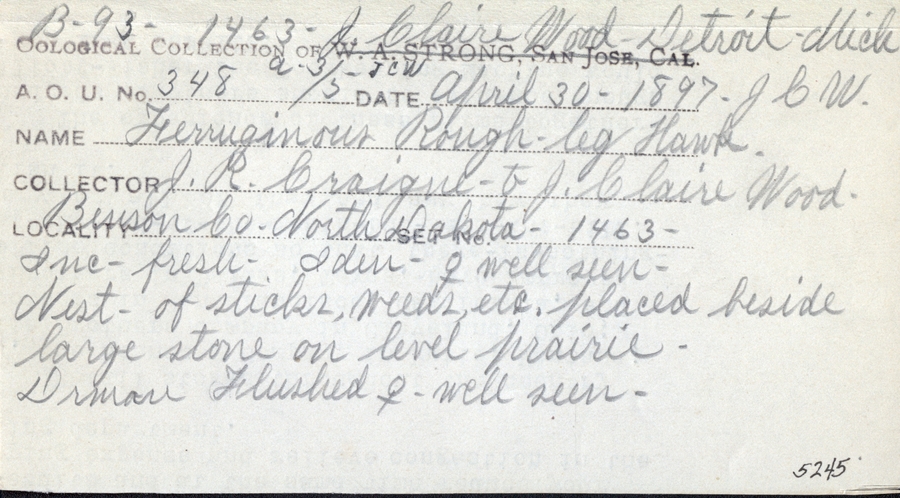 B-93- 1463- J. Claire Wood- Detroit- Mich
OOLOGICAL COLLECTION OF W. A. STRONG, SAN JOSE, CAL.
a-3/5- JCW
A. O. U. No. 348 DATE April 30- 1897- J C W.
NAME Ferruginous Rough-leg Hawk.
COLLECTOR J. R. Craigue- to J. Claire Wood-
LOCALITY Benson Co- North Dakota- SET No. 1463-
Inc- fresh- Iden- ♀ well seen-
Nest- of sticks, weeds, etc. placed beside
large stone on level prairie-
Flushed ♀- well seen-
5245